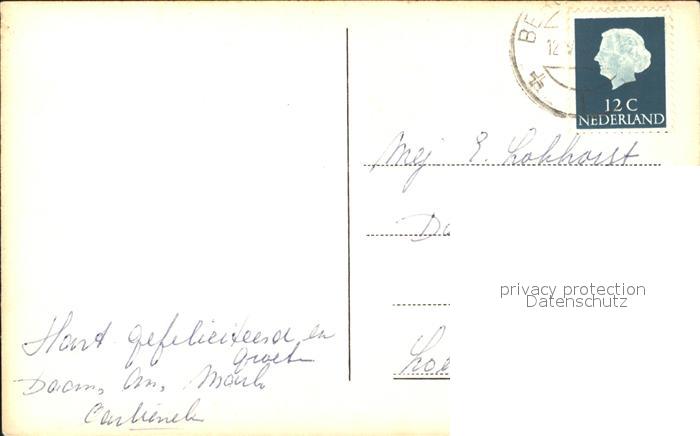 BE
12 V
12 C
NEDERLAND
Mej E. Lokhorst
Da
privacy protection
Datenschutz
Loe
Hart. gefeliciteerd en
groet
Daam, An, Mark